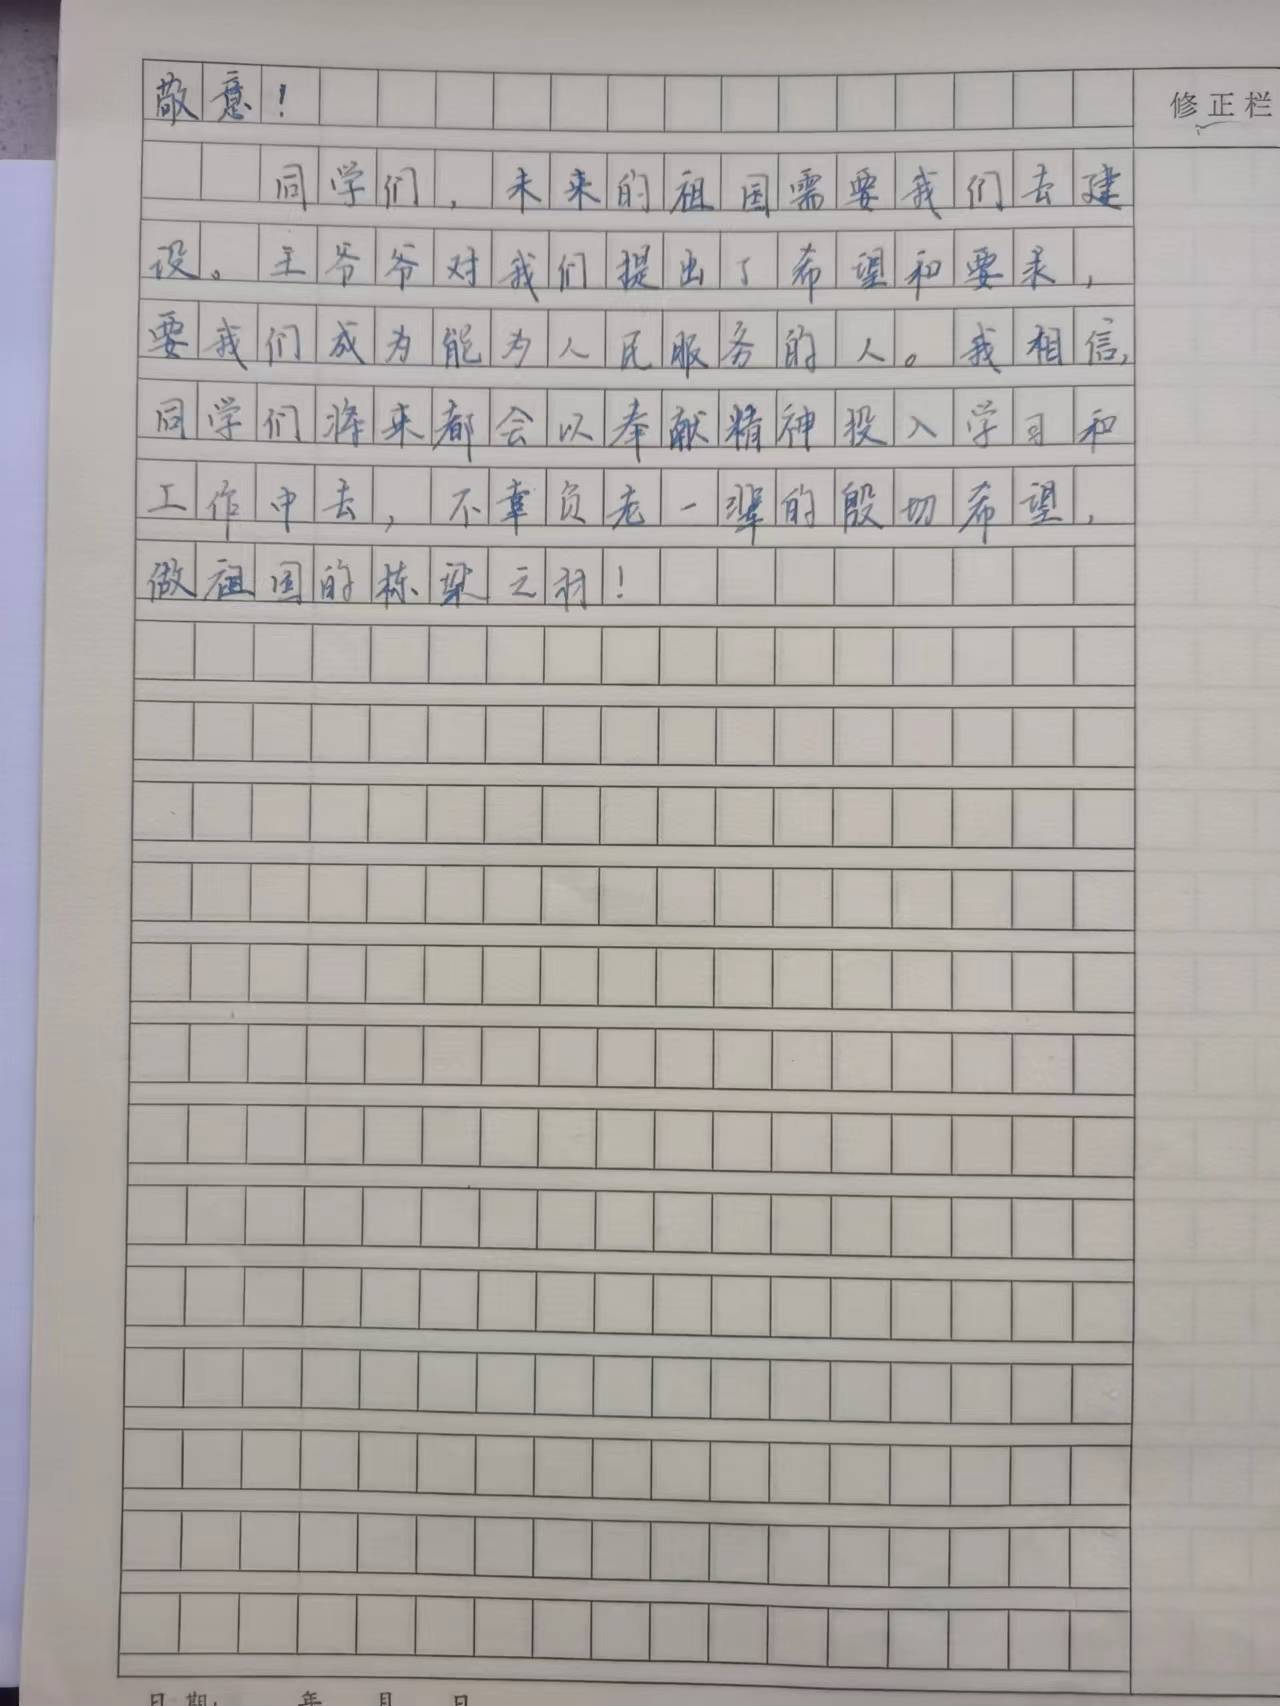 敬意！
修正栏
同学们，未来的祖国需要我们去建
设。王爷爷对我们提出了希望和要求，
要我们成为能为人民服务的人。我相信，
同学们将来都会以奉献精神投入学习和
工作中去，不辜负老一辈的殷切希望，
做祖国的栋梁之材！
日期： 年 月 日